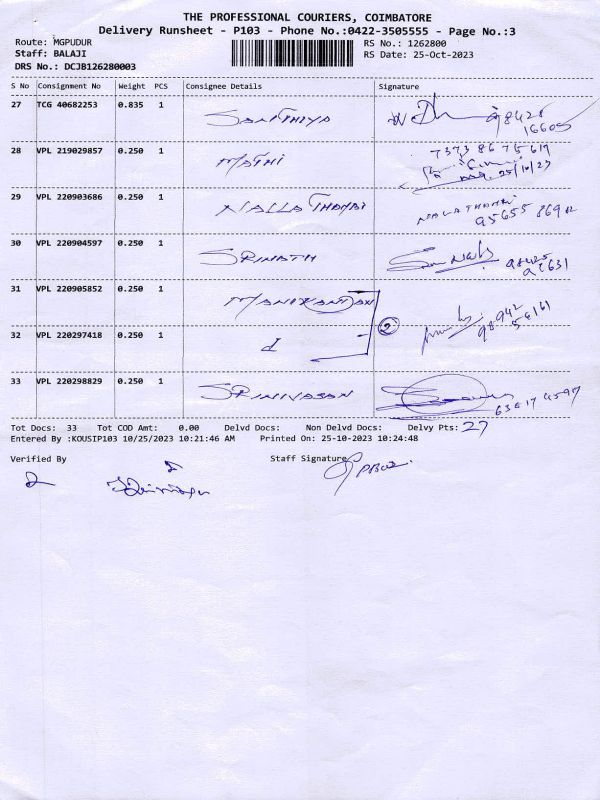 THE PROFESSIONAL COURIERS, COIMBATORE
Delivery Runsheet - P103 - Phone No.:0422-3505555 - Page No.:3
Route: MGPUDUR RS No.: 1262800
Staff: BALAJI RS Date: 25-Oct-2023
DRS No.: DCJB126280003
S No Consignment No Weight PCS Consignee Details Signature
27 TCG 40682253 0.835 1 98428
16605
28 VPL 219029857 0.250 1 MATHI 73738675619
25/10/23
29 VPL 220903686 0.250 1 NALLATHAMBI
95655
30 VPL 220904597 0.250 1 SRINATH 98425
31 VPL 220905852 0.250 1 MANIKANDAN 2 98942
32 VPL 220297418 0.250 1
33 VPL 220298829 0.250 1 SRINIVASAN
Tot Docs: 33 Tot COD Amt: 0.00 Delvd Docs: Non Delvd Docs: Delvy Pts: 27
Entered By :KOUSIP103 10/25/2023 10:21:46 AM Printed On: 25-10-2023 10:24:48
Verified By Staff Signature